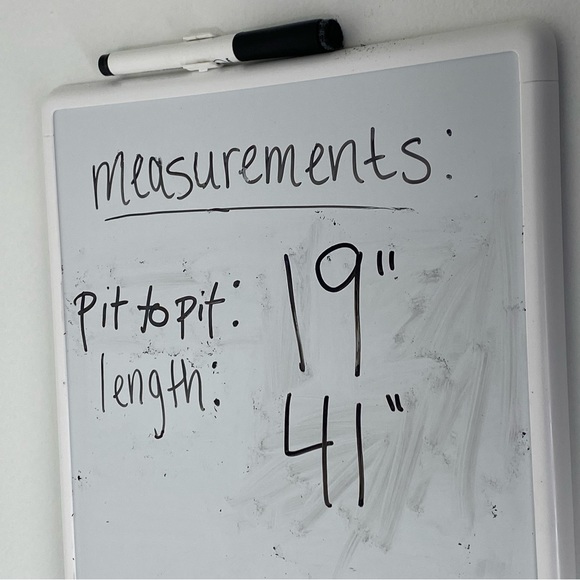 measurements:
pit to pit: 19"
length: 41"